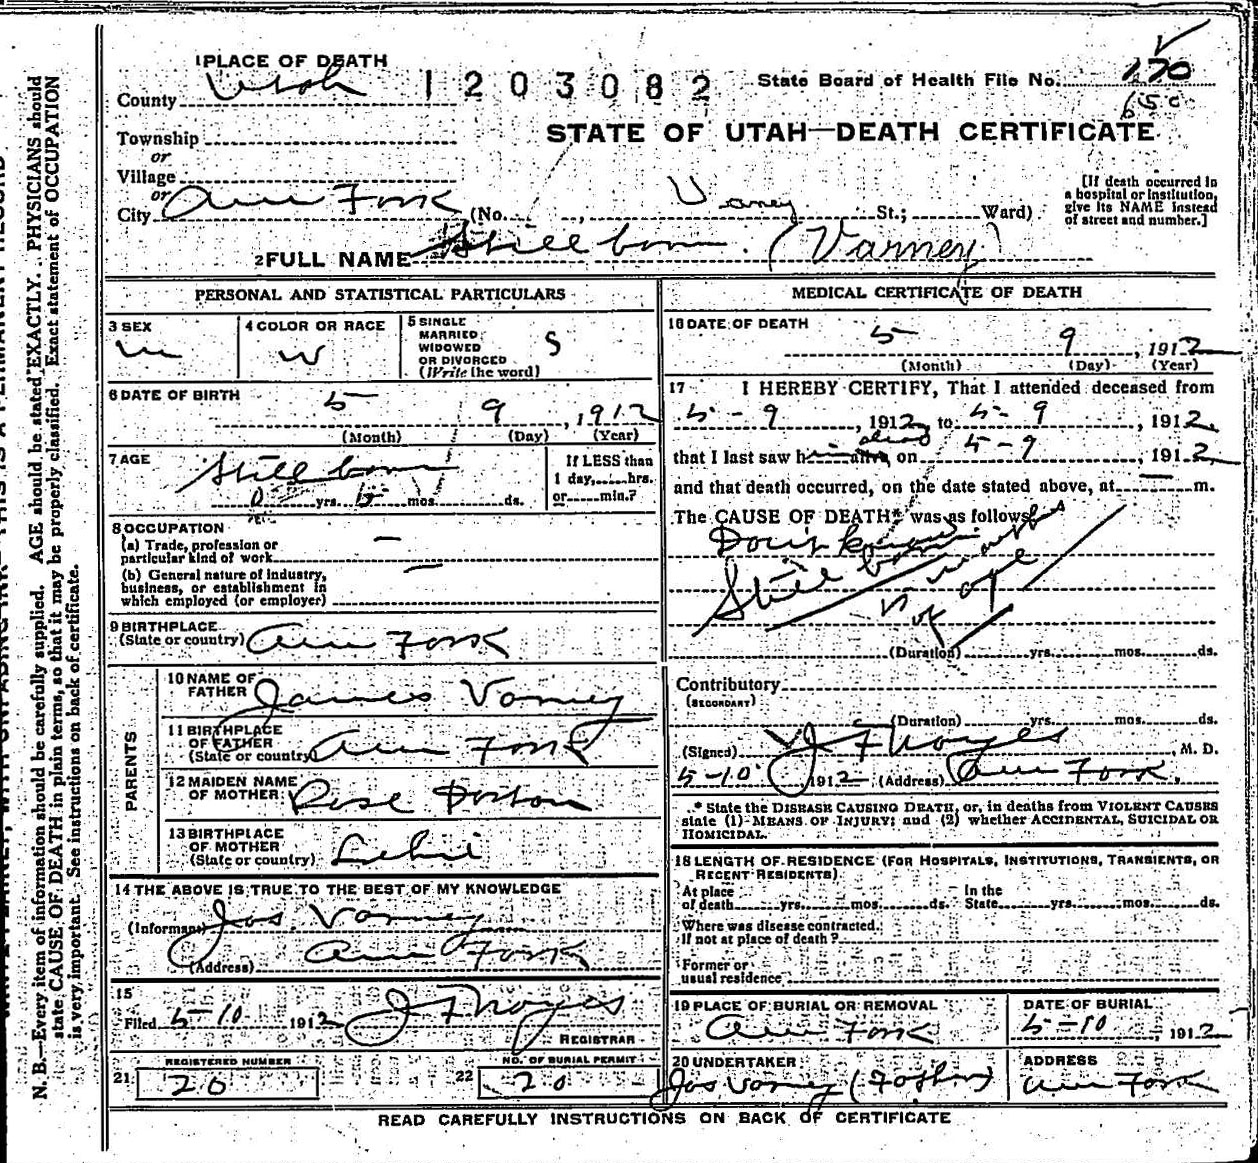 1 PLACE OF DEATH
County Utah
1203082
State Board of Health File No. 170
650
STATE OF UTAH—DEATH CERTIFICATE
Township
or
Village
or
City Am Fork (No. , Varney St.; Ward)
[If death occurred in a hospital or institution, give its NAME instead of street and number.]
2 FULL NAME Stillborn. (Varney)
PERSONAL AND STATISTICAL PARTICULARS
3 SEX
m
4 COLOR OR RACE
W
5 SINGLE MARRIED WIDOWED OR DIVORCED (Write the word)
S
6 DATE OF BIRTH
5 9, 1912
(Month) (Day) (Year)
7 AGE
Stillborn
0 yrs. 5 mos. ds.
If LESS than 1 day, hrs. or min.?
8 OCCUPATION
(a) Trade, profession or particular kind of work —
(b) General nature of industry, business, or establishment in which employed (or employer) —
9 BIRTHPLACE (State or country) Am Fork
PARENTS
10 NAME OF FATHER James Varney
11 BIRTHPLACE OF FATHER (State or country) Am Fork
12 MAIDEN NAME OF MOTHER Rose Dorton
13 BIRTHPLACE OF MOTHER (State or country) Lehi
14 THE ABOVE IS TRUE TO THE BEST OF MY KNOWLEDGE
(Informant) Jas. Varney
(Address) Am Fork
15
Filed 5-10 1912 J F Noyes
REGISTRAR
21 REGISTERED NUMBER 20
22 NO. OF BURIAL PERMIT 20
MEDICAL CERTIFICATE OF DEATH
16 DATE OF DEATH
5 9, 1912
(Month) (Day) (Year)
17 I HEREBY CERTIFY, That I attended deceased from
5-9, 1912, to 5-9, 1912,
that I last saw him alive dead on 5-9, 1912,
and that death occurred, on the date stated above, at — m.
The CAUSE OF DEATH* was as follows:
Don't know
Still born
5 months
of age
(Duration) yrs. mos. ds.
Contributory
(SECONDARY)
(Duration) yrs. mos. ds.
(Signed) J F Noyes, M. D.
5-10 1912 (Address) Am Fork.
* State the DISEASE CAUSING DEATH, or, in deaths from VIOLENT CAUSES state (1) MEANS OF INJURY; and (2) whether ACCIDENTAL, SUICIDAL OR HOMICIDAL.
18 LENGTH OF RESIDENCE (FOR HOSPITALS, INSTITUTIONS, TRANSIENTS, OR RECENT RESIDENTS)
At place of death yrs. mos. ds. In the State yrs. mos. ds.
Where was disease contracted, If not at place of death?
Former or usual residence
19 PLACE OF BURIAL OR REMOVAL
Am Fork
DATE OF BURIAL
5-10, 1912
20 UNDERTAKER
Jas Varney (Father)
ADDRESS
Am Fork
READ CAREFULLY INSTRUCTIONS ON BACK OF CERTIFICATE
N. B.—Every item of information should be carefully supplied. AGE should be stated EXACTLY. PHYSICIANS should
state CAUSE OF DEATH in plain terms, so that it may be properly classified. Exact statement of OCCUPATION
is very important. See instructions on back of certificate.